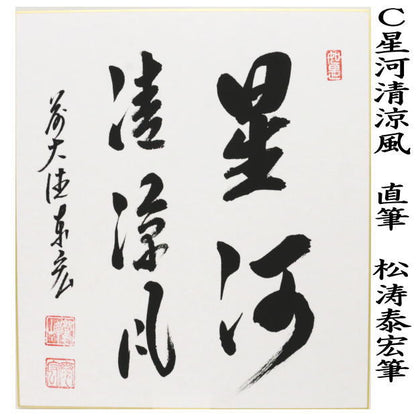 C星河清涼風　直筆　松涛泰宏筆
星河
清涼風
前大徳泰宏